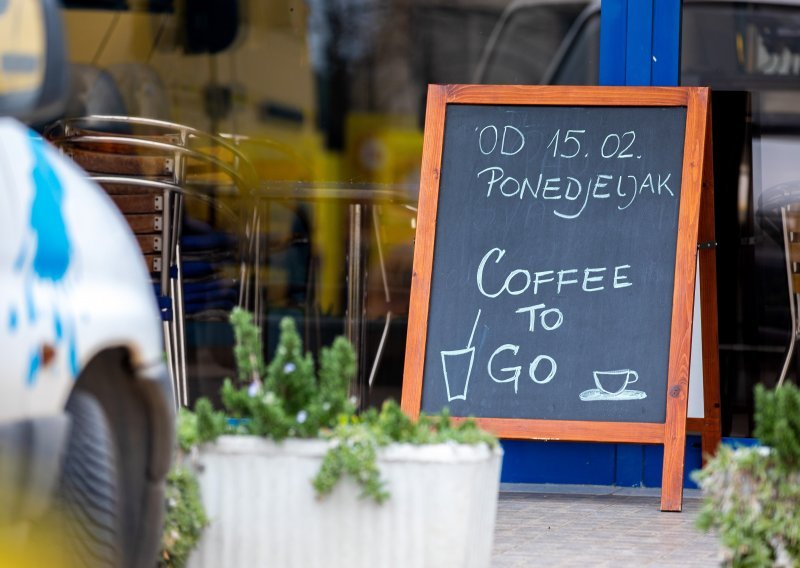 OD 15.02.
PONEDJELJAK
COFFEE
TO
GO